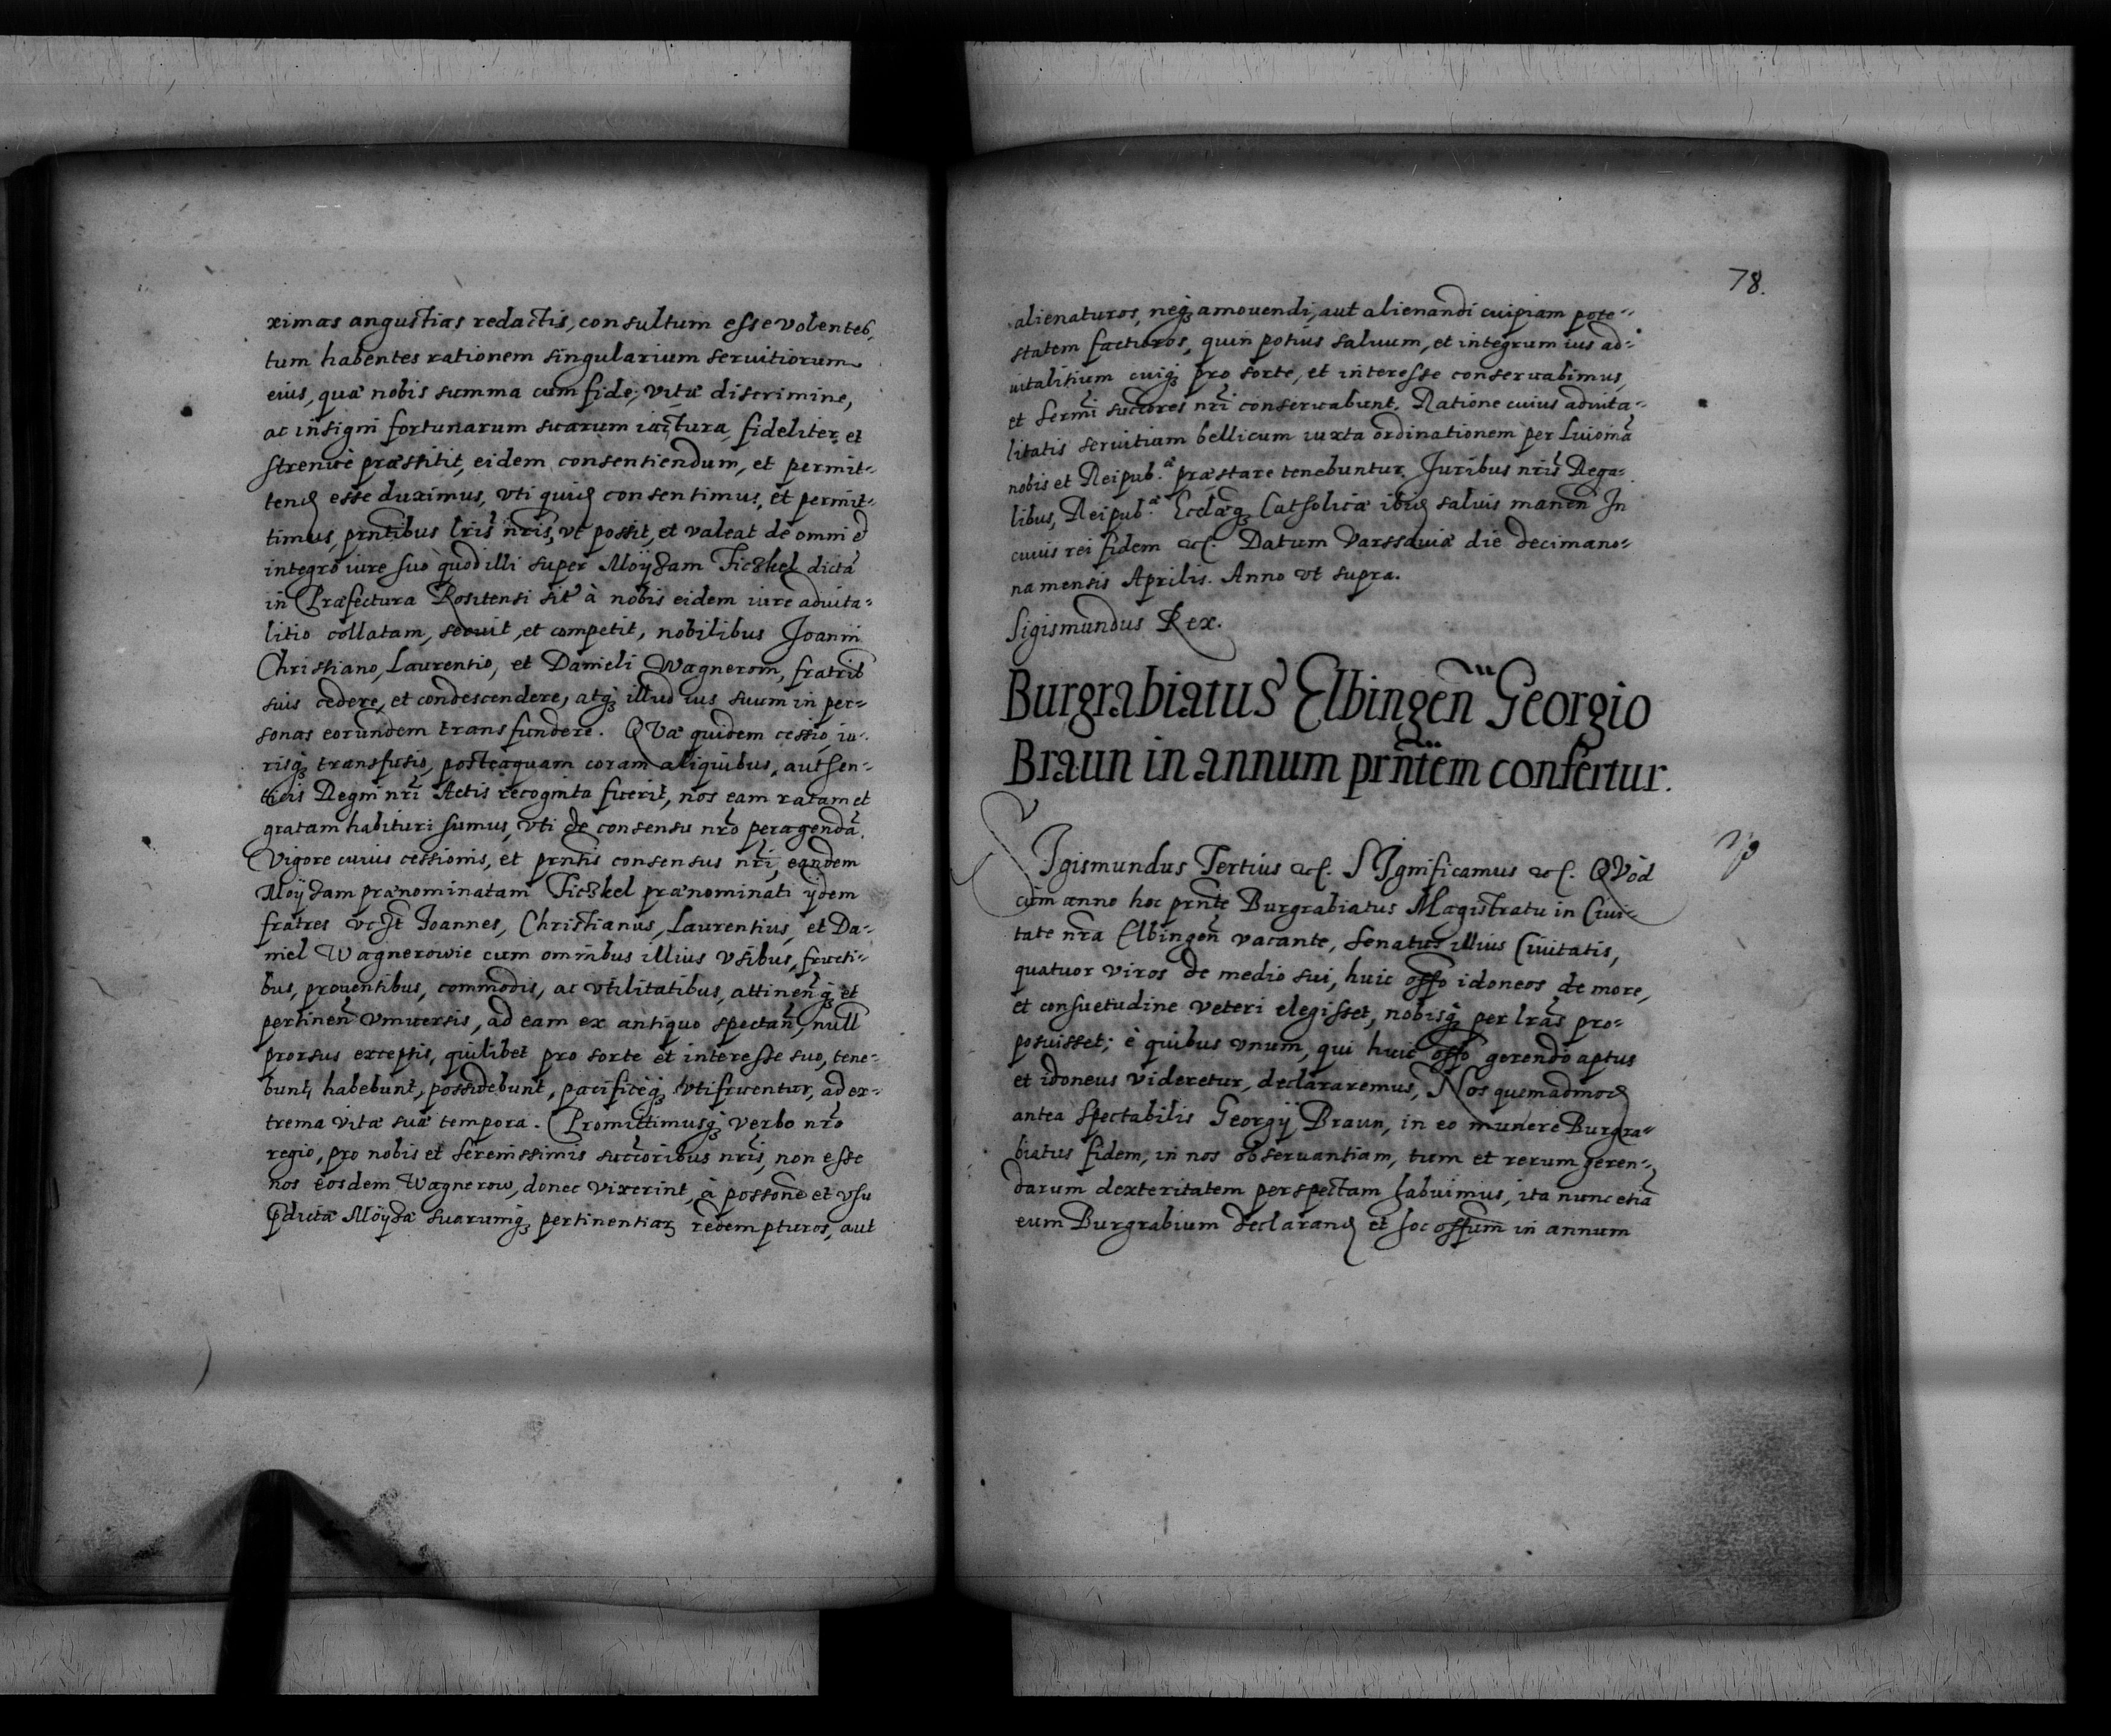 ximas angustias redactis, consultum esse volentes,
tum habentes rationem singularium seruitiorum
eius, quæ nobis summa cum fide, vitæ discrimine,
ac insigni fortunarum suarum iactura, fideliter et
strenuè præstitit, eidem consentiendum, et permit-
tend esse duximus, vti quid consentimus, et permit-
timus, prntibus lris nris, vt possit, et valeat de omni et
integro iure suo quod illi super Moyzam Ficzkel dictã
in Præfectura Rositensi sit à nobis eidem iure aduita-
litio collatam, seruit, et competit, nobilibus Joanni
Christiano, Laurentio, et Danieli Wagnerom, fratrib
suis cedere, et condescendere, atq illud ius suum in per-
sonas eorundem transfundere. QVæ quidem cessio, iu-
risq transfusio, posteaquam coram aliquibus, authen-
ticis Regni nri Actis recognita fuerit, nos eam ratam et
gratam habituri sumus, vti de consensu nro peragendã.
Vigore cuius cessionis, et prntis consensus nri, eandem
Moyzam prænominatam Ficzkel prænominati ijdem
fratres vcst Joannes, Christianus, Laurentius, et Da-
niel Wagnerowie cum omnibus illius vsibus, fructi-
bus, prouentibus, commodis, ac vtilitatibus, attinenq et
pertinen vniuersis, ad eam ex antiquo spectan, null
prorsus exceptis, quilibet pro sorte et interesse suo, tene-
bunt, habebunt, possidebunt, pacificèq vtifruentur, ad ex-
trema vitæ suæ tempora. Promittimusq verbo nro
regio, pro nobis et serenissimis succoribus nris, non esse
nos eosdem Wagnerow, donec vixerint, à possone et vsu
pdictæ Moyzæ suarumq pertinentiar redempturos, aut
78.
alienaturos, neq amouendi, aut alienandi cuipiam pote-
statem facturos, quin potius saluum, et integrum ius ad-
uitalitium cuiq pro sorte, et interesse conseruabimus,
et sermi succores nri conseruabunt. Ratione cuius aduita-
litatis seruitiam bellicum iuxta ordinationem per Liuoniã
nobis et Reipub.æ præstare tenebuntur. Juribus nris Rega-
libus, Reipub.æ Ecclæq Catholicæ ibid saluis manen. In
cuuis rei fidem &c. Datum Varssauiæ die decimano-
na mensis Aprilis. Anno vt supra.
Sigismundus Rex.
Burgrabiatus Elbingen Georgio
Braun in annum prntem confertur.
SJgismundus Tertius &c. SJgnificamus &c. QVod
cùm anno hoc prnte Burgrabiatus Magistratu in Ciui-
tate nra Elbingen vacante, Senatus illius Ciuitatis,
quatuor viros de medio sui, huic offo idoneos de more,
et consuetudine veteri elegisset, nobisq per lras pro-
posuisset; è quibus vnum, qui huic offo gerendo aptus
et idoneus videretur, declararemus, Nos quemadmod
antea spectabilis Georgij Braun, in eo munere Burgra-
biatus fidem, in nos obseruantiam, tum et rerum geren-
darum dexteritatem perspectam habuimus, ita nunc etiã
eum Burgrabium declarand et hoc offum in annum